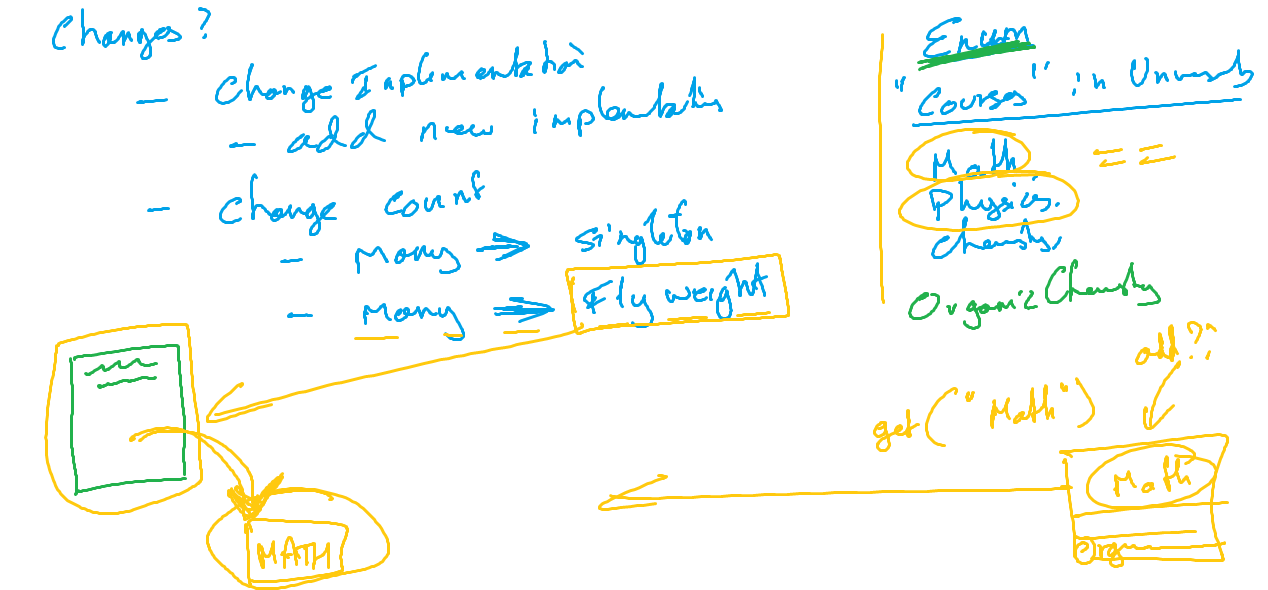 Changes?
- Change Implementation
- add new implementation
- Change count
- Many => Singleton
- Many => Fly weight
Enum
"Courses" in University
Math ==
Physics.
Chemistry,
Organic Chemistry
add??
get("Math")
Math
Org
MATH